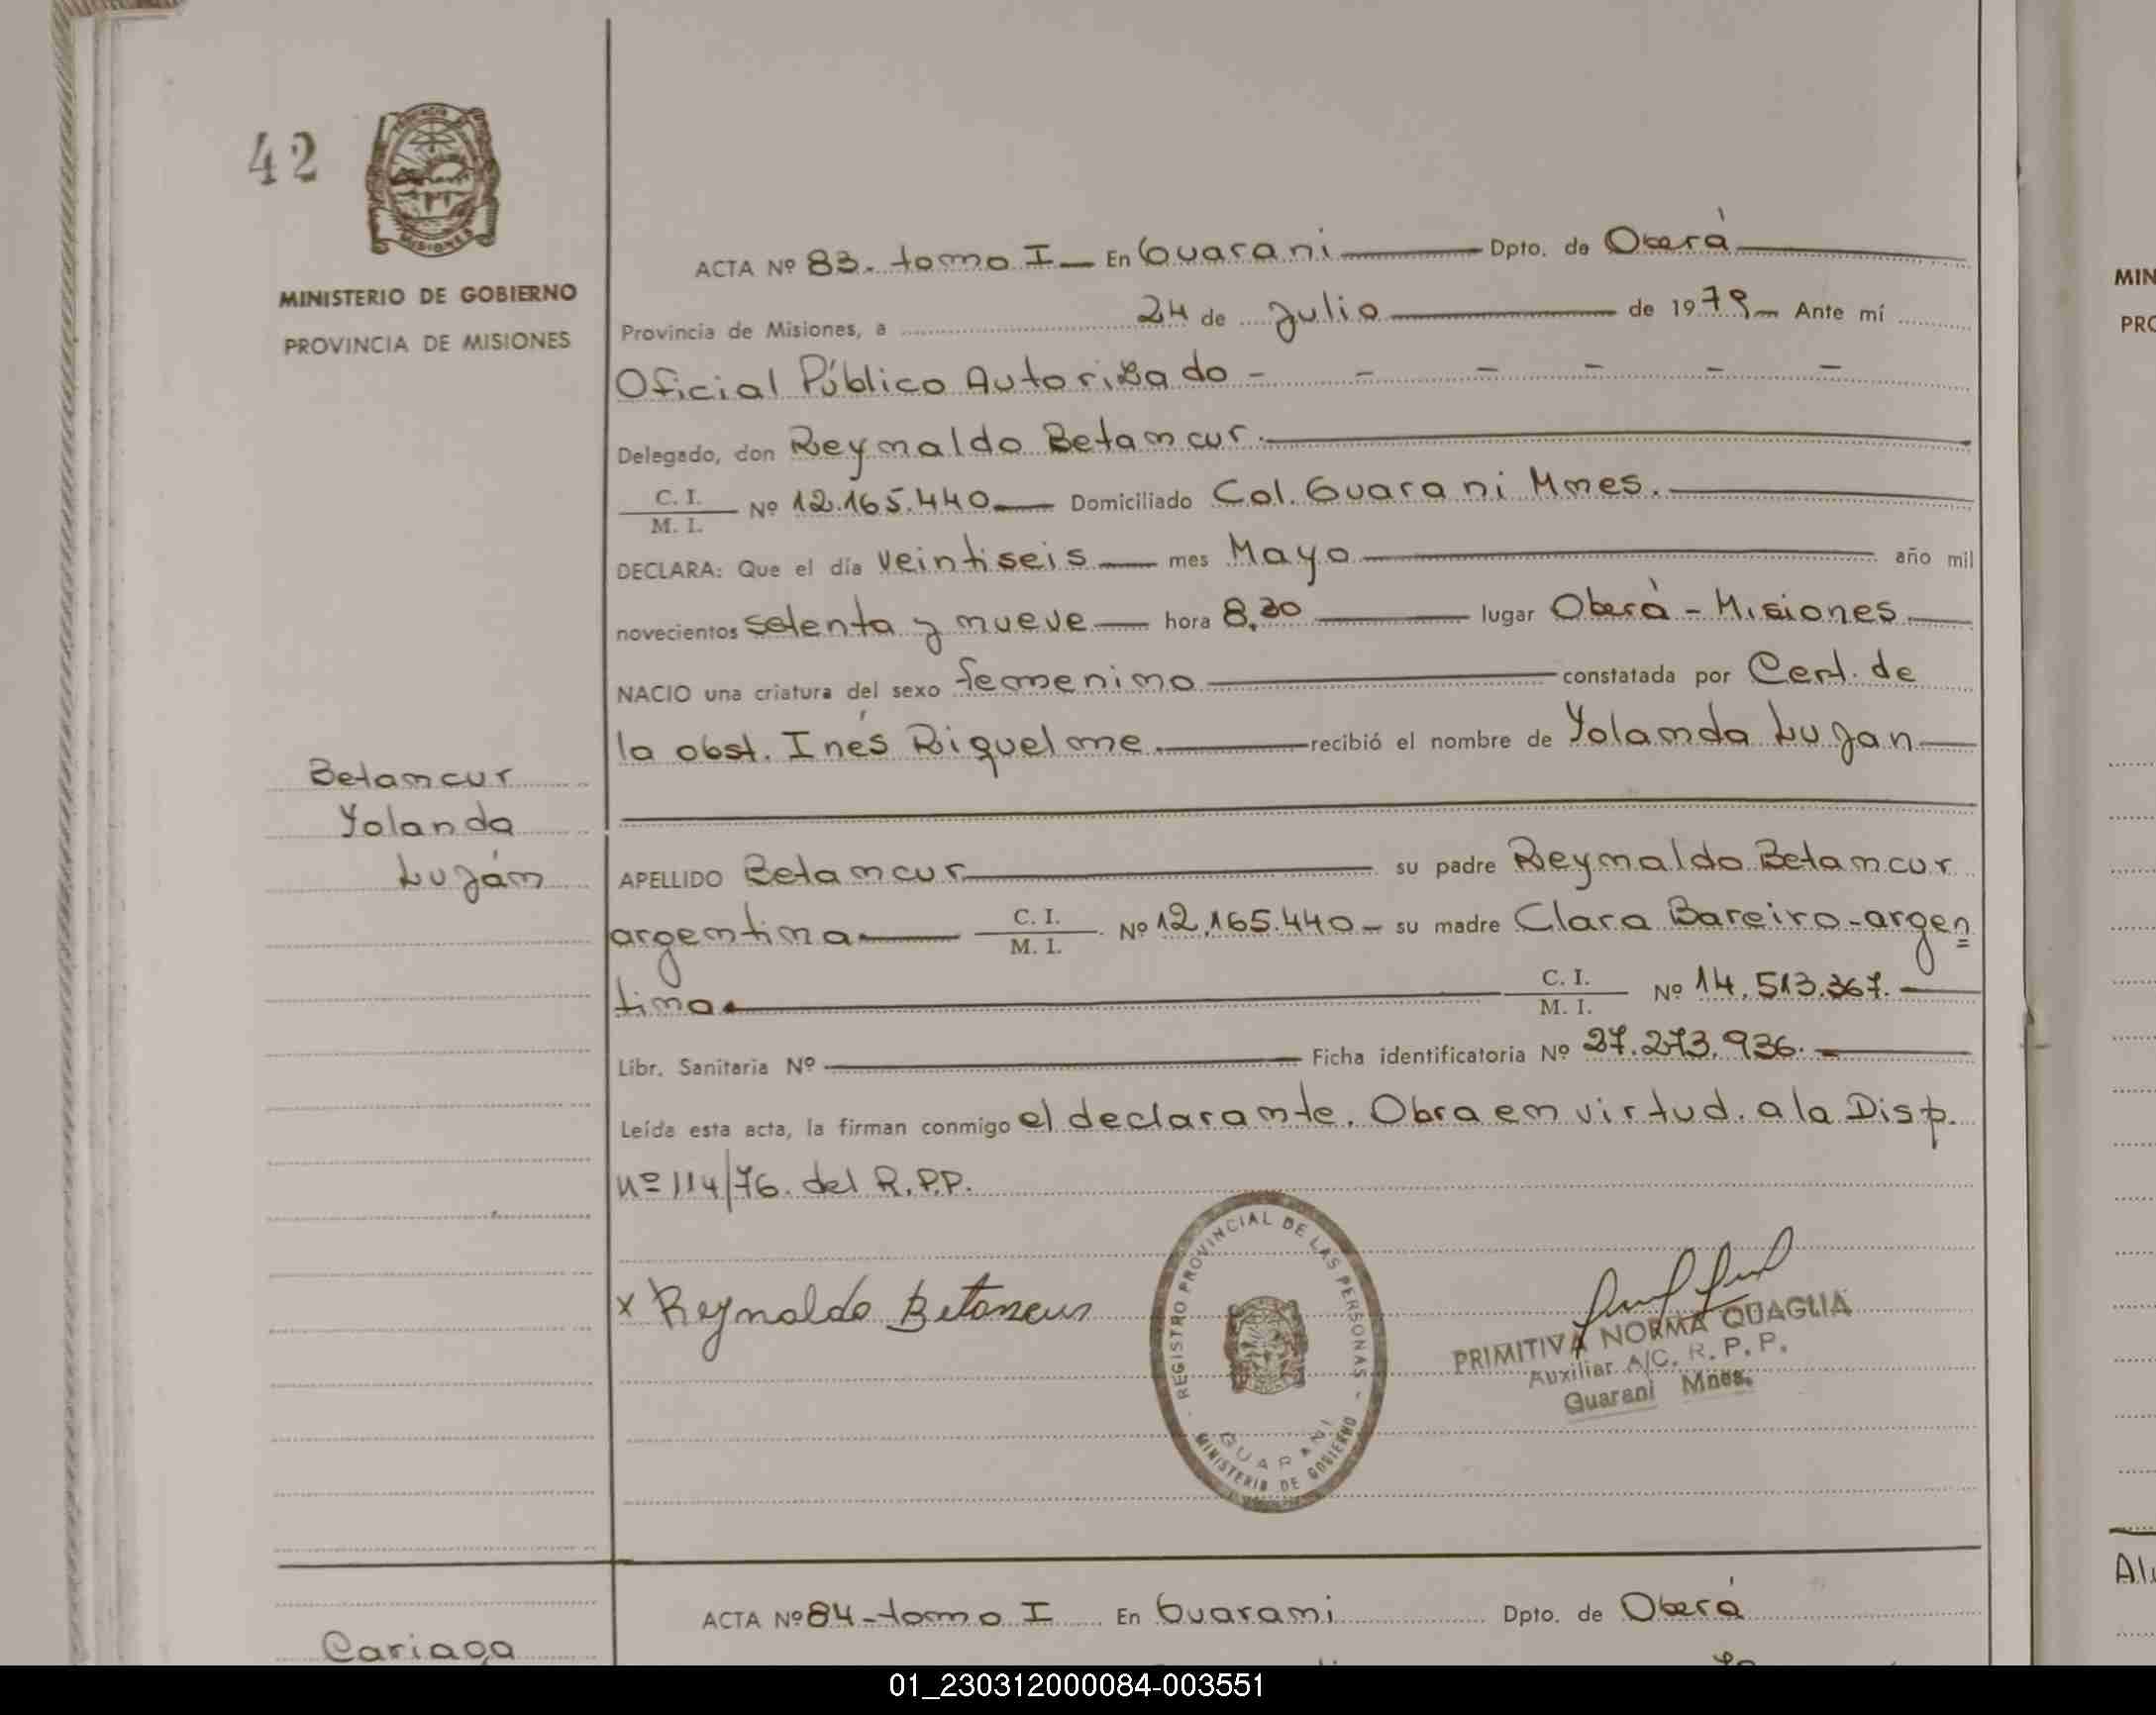 42
MISIONES
MINISTERIO DE GOBIERNO
PROVINCIA DE MISIONES
Betancur
Yolanda
Luján
ACTA Nº 83. tomo I En Guarani Dpto. de Oberá
Provincia de Misiones, a 24 de Julio de 1979 Ante mí
Oficial Público Autorizado - - - - - -
Delegado, don Reynaldo Betancur.
C. I.
M. I.
Nº 12.165.440 Domiciliado Col. Guarani Mnes.
DECLARA: Que el día veintiseis mes Mayo año mil
novecientos setenta y nueve hora 8,30 lugar Oberá - Misiones
NACIO una criatura del sexo femenino constatada por Cert. de
la obst. Inés Riquelme. recibió el nombre de Yolanda Lujan
APELLIDO Betancur su padre Reynaldo Betancur
argentina C. I.
M. I.
Nº 12.165.440 - su madre Clara Bareiro - argen
tina C. I.
M. I.
Nº 14.513.367.
Libr. Sanitaria Nº Ficha identificatoria Nº 27.273.936.
Leída esta acta, la firman conmigo el declarante. Obra en virtud. a la Disp.
Nº 114/76. del R.P.P.
x Reynaldo Betancur
REGISTRO PROVINCIAL DE LAS PERSONAS
GUARANI
MINISTERIO DE GOBIERNO
PRIMITIVA NORMA QUAGLIA
Auxiliar A/C. R. P. P.
Guarani Mnes.
ACTA Nº 84 - tomo I En Guarani Dpto. de Oberá
Cariaga
MIN
PRO
01_230312000084-003551